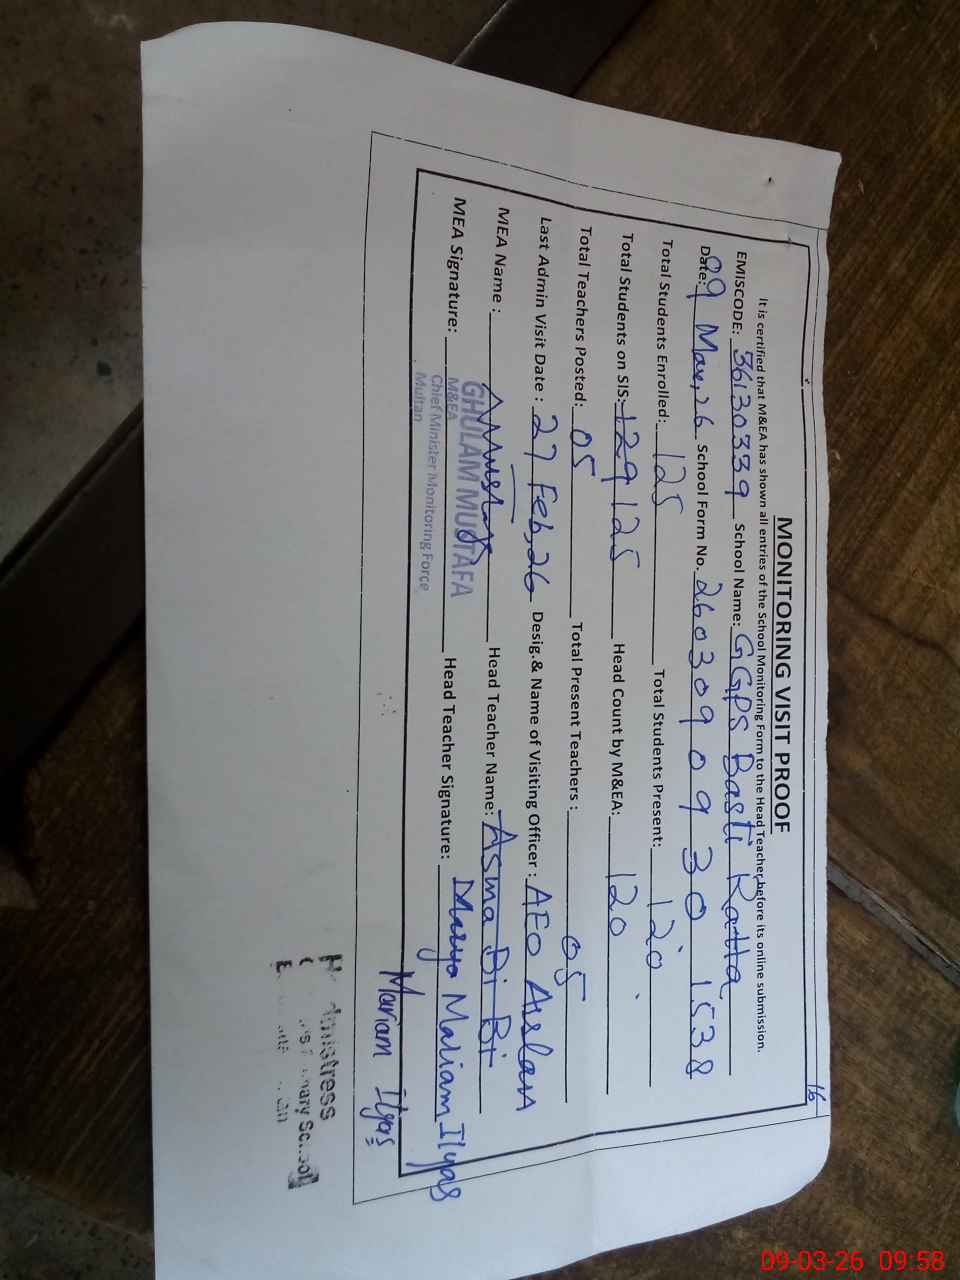 16
MONITORING VISIT PROOF
It is certified that M&EA has shown all entries of the School Monitoring Form to the Head Teacher before its online submission.
EMISCODE: 36130339 School Name: GGPS Basti Ratta
Date: 09 Mar, 26 School Form No. 2603090930 1538
Total Students Enrolled: 125 Total Students Present: 120
Total Students on SIS: 129 125 Head Count by M&EA: 120
Total Teachers Posted: 05 Total Present Teachers : 05
Last Admin Visit Date : 27 Feb, 26 Desig.& Name of Visiting Officer : AEO Arslan
MEA Name : Head Teacher Name: Asma Bi Bi
MEA Signature: Head Teacher Signature: Maliam Ilyas
GHULAM MUSTAFA
M&EA
Chief Minister Monitoring Force
Multan
Mariam Ilyas
09-03-26 09:58